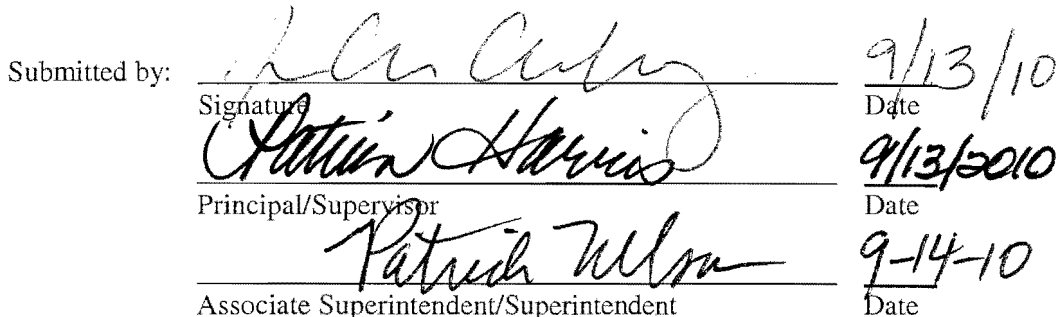 Submitted by: 9/13/10
Signature Date
Patricia Harris 9/13/2010
Principal/Supervisor Date
Patrick Nelson 9-14-10
Associate Superintendent/Superintendent Date